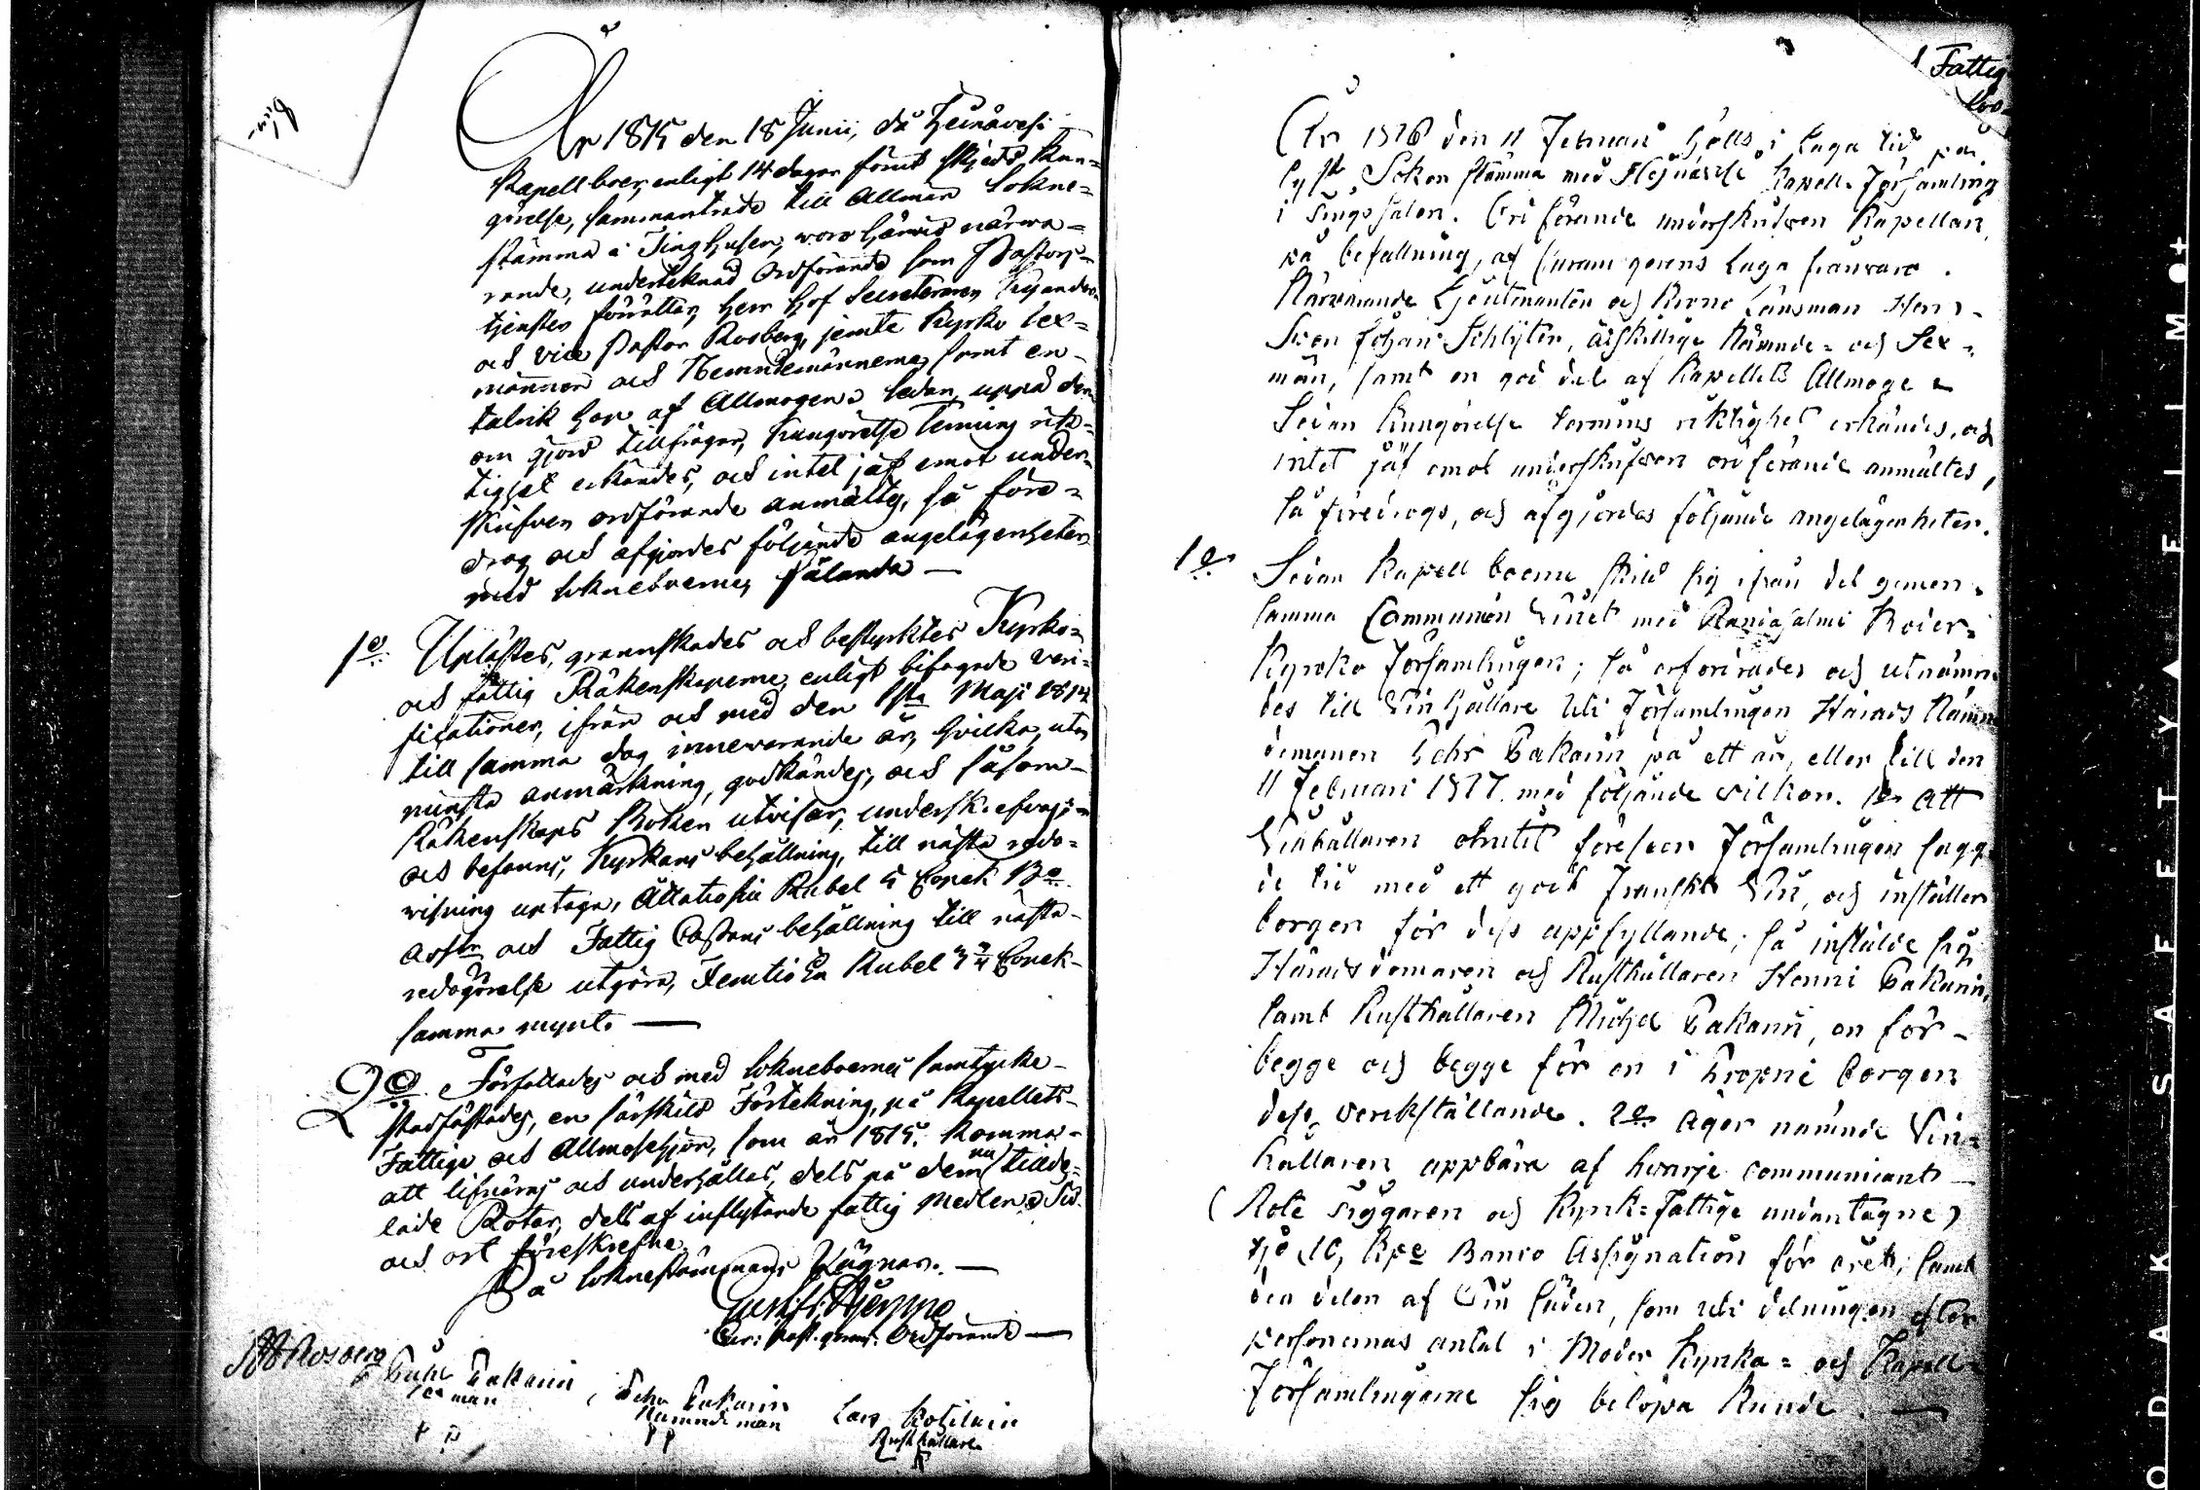 År 1815 den 18 Junii, då Heinävesi
Kapellboer, enligt 14 dagar förut skjedd kun-
görelse, sammanträde till Allmän Sokne-
stämma i Tinghusen, voro härvid närva-
rande, undertecknad Ordförande som Pastors-
tjensten förrättar, Herr Hof Secreteraren
och Vice Pastor Rosberg, jemte Kyrko Sex-
männer och Nemndemännerne, samt en
talrik hop af Allmogen. Sedan, uppå der-
om gjord tillfrågan, kungörelse Termins rik-
tighet erkändes, och intet jäf emot under-
skrifven ordförande anmältes, så före-
drog och afgjordes följande angelägenheter
med Sokneboerne, sålunda —
1o Uplästes, granskades och bestyrktes Kyrko-
och fattig Räkenskaperne, enligt bifogade veri-
ficationer, ifrån och med den 1sta Maji 1814
till samma dag innevarande år, hvilka, utan
minsta anmärkning, godkändes, och såsom
Räkenskaps Boken utvisar, underskrefvos;
och befanns, Kyrkans behållning, till nästa redo-
visning uptaga, Rubel 5 Copek Bco
Assgn och Fattig Cassans behållning till nästa
redogörelse utgöra, Femtio En Rubel Copek
samma mynt. —
2o Författades och med Sokneboernes samtycke
stadfästades, en särskild Förtekning, på Kapellets
Fattige och Allmosehjon, som år 1815 komma
att lifnäras och underhållas, dels på dem nu tillde-
lade Rotar, dels af inflytande fattig Medlen. Tid
och ort föreskrefne.
På Soknestämmans Vägnar. —
Ordförande —
Rosberg
Pakarin
Sexman
Pakarin
Nämndeman
Lars Kotilain
Rusthållare
Fattig
År 1816 den 11 Februari hölls i laga tid på-
lyst Sokenstämma med Heinävesi Kapell-Församling
i Tings salen. Ordförande underskrifven Kapellan,
på befallning, af Curam gerens laga frånvaro.
Närvarande Lieutnanten och Krono Länsman Herr
Sven Johan Schlyter, åtskillige Nämnde- och Sex-
män, samt en god del af Kapellets Allmoge.
Sedan Kungörelse termins riktighet erkändes, och
intet jäf emot underskrifven ordförande anmältes,
så föredrogs, och afgjordes följande angelägenheter.
1o Sedan Kapell boerne skild sig ifrån det gemen-
samma Communion Vinet med Rantasalmi Moder-
Kyrko Församlingen; så erfordrades och utnämn-
des till Vinhållare uti Församlingen Härads Nämn-
demannen Pakarin på ett år, eller till den
11 Februari 1817. med följande vilkor. 1o att
Vinhållaren förser Församlingen
med ett godt Franskt Vin, och inställer
borgen för dess uppfyllande; så instälde sig
Häradsdomaren och Rusthållaren Henric Pakarin,
samt Rusthållaren Michel Pakarin, en för
begge och begge för en i borgen
dess verkställande. 2o äger nämnde Vin-
hållaren uppbära af hvarje communicant
(Rote och Kyrk-Fattige undantagne)
tjo (10) Kpc Banco Assignation för året, samt
den delen af Vin säden, som uti delningen efter
personernas antal i Moder Kyrko- och Kapell-
Församlingarne sig belöpa kunde. —
KODAK SAFETY FILM